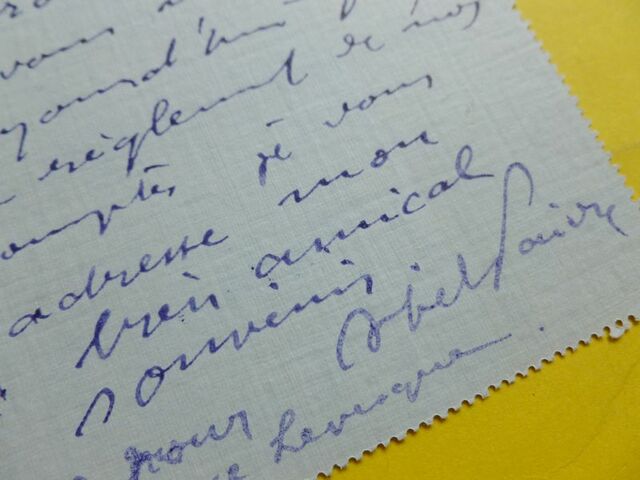 vous
règlement de nos
comptes je vous
adresse mon
bien amical
souvenir
Abel Faivre
pour